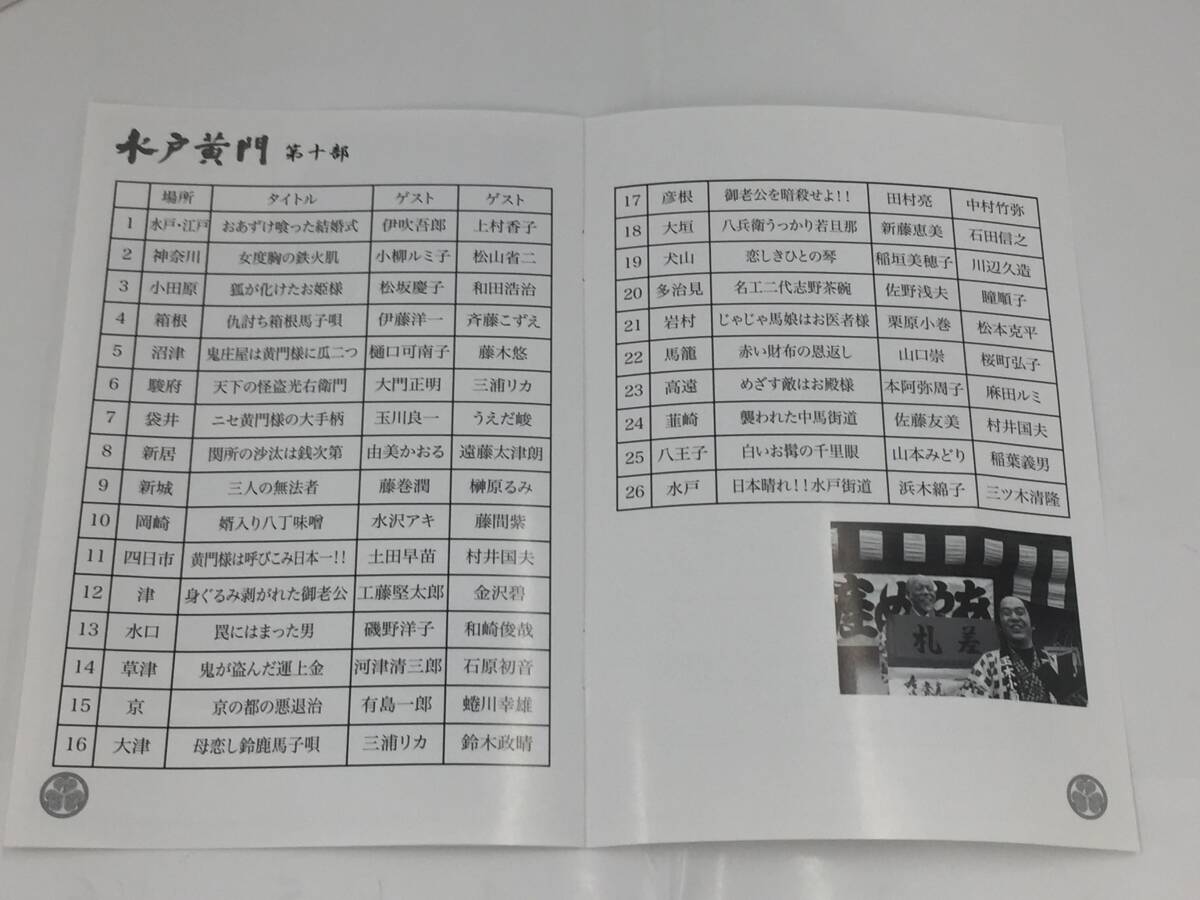 水戸黄門 第十部
場所 タイトル ゲスト ゲスト
1 水戸・江戸 おあずけ喰った結婚式 伊吹吾郎 上村香子
2 神奈川 女度胸の鉄火肌 小柳ルミ子 松山省二
3 小田原 狐が化けたお姫様 松坂慶子 和田浩治
4 箱根 仇討ち箱根馬子唄 伊藤洋一 斉藤こずえ
5 沼津 鬼庄屋は黄門様に瓜二つ 樋口可南子 藤木悠
6 駿府 天下の怪盗光右衛門 大門正明 三浦リカ
7 袋井 ニセ黄門様の大手柄 玉川良一 うえだ峻
8 新居 関所の沙汰は銭次第 由美かおる 遠藤太津朗
9 新城 三人の無法者 藤巻潤 榊原るみ
10 岡崎 婿入り八丁味噌 水沢アキ 藤間紫
11 四日市 黄門様は呼びこみ日本一!! 土田早苗 村井国夫
12 津 身ぐるみ剥がれた御老公 工藤堅太郎 金沢碧
13 水口 罠にはまった男 磯野洋子 和崎俊哉
14 草津 鬼が盗んだ運上金 河津清三郎 石原初音
15 京 京の都の悪退治 有島一郎 蜷川幸雄
16 大津 母恋し鈴鹿馬子唄 三浦リカ 鈴木政晴
17 彦根 御老公を暗殺せよ!! 田村亮 中村竹弥
18 大垣 八兵衛うっかり若旦那 新藤恵美 石田信之
19 犬山 恋しきひとの琴 稲垣美穂子 川辺久造
20 多治見 名工二代志野茶碗 佐野浅夫 瞳順子
21 岩村 じゃじゃ馬娘はお医者様 栗原小巻 松本克平
22 馬籠 赤い財布の恩返し 山口崇 桜町弘子
23 高遠 めざす敵はお殿様 本阿弥周子 麻田ルミ
24 韮崎 襲われた中馬街道 佐藤友美 村井国夫
25 八王子 白いお髯の千里眼 山本みどり 稲葉義男
26 水戸 日本晴れ!!水戸街道 浜木綿子 三ツ木清隆
札差